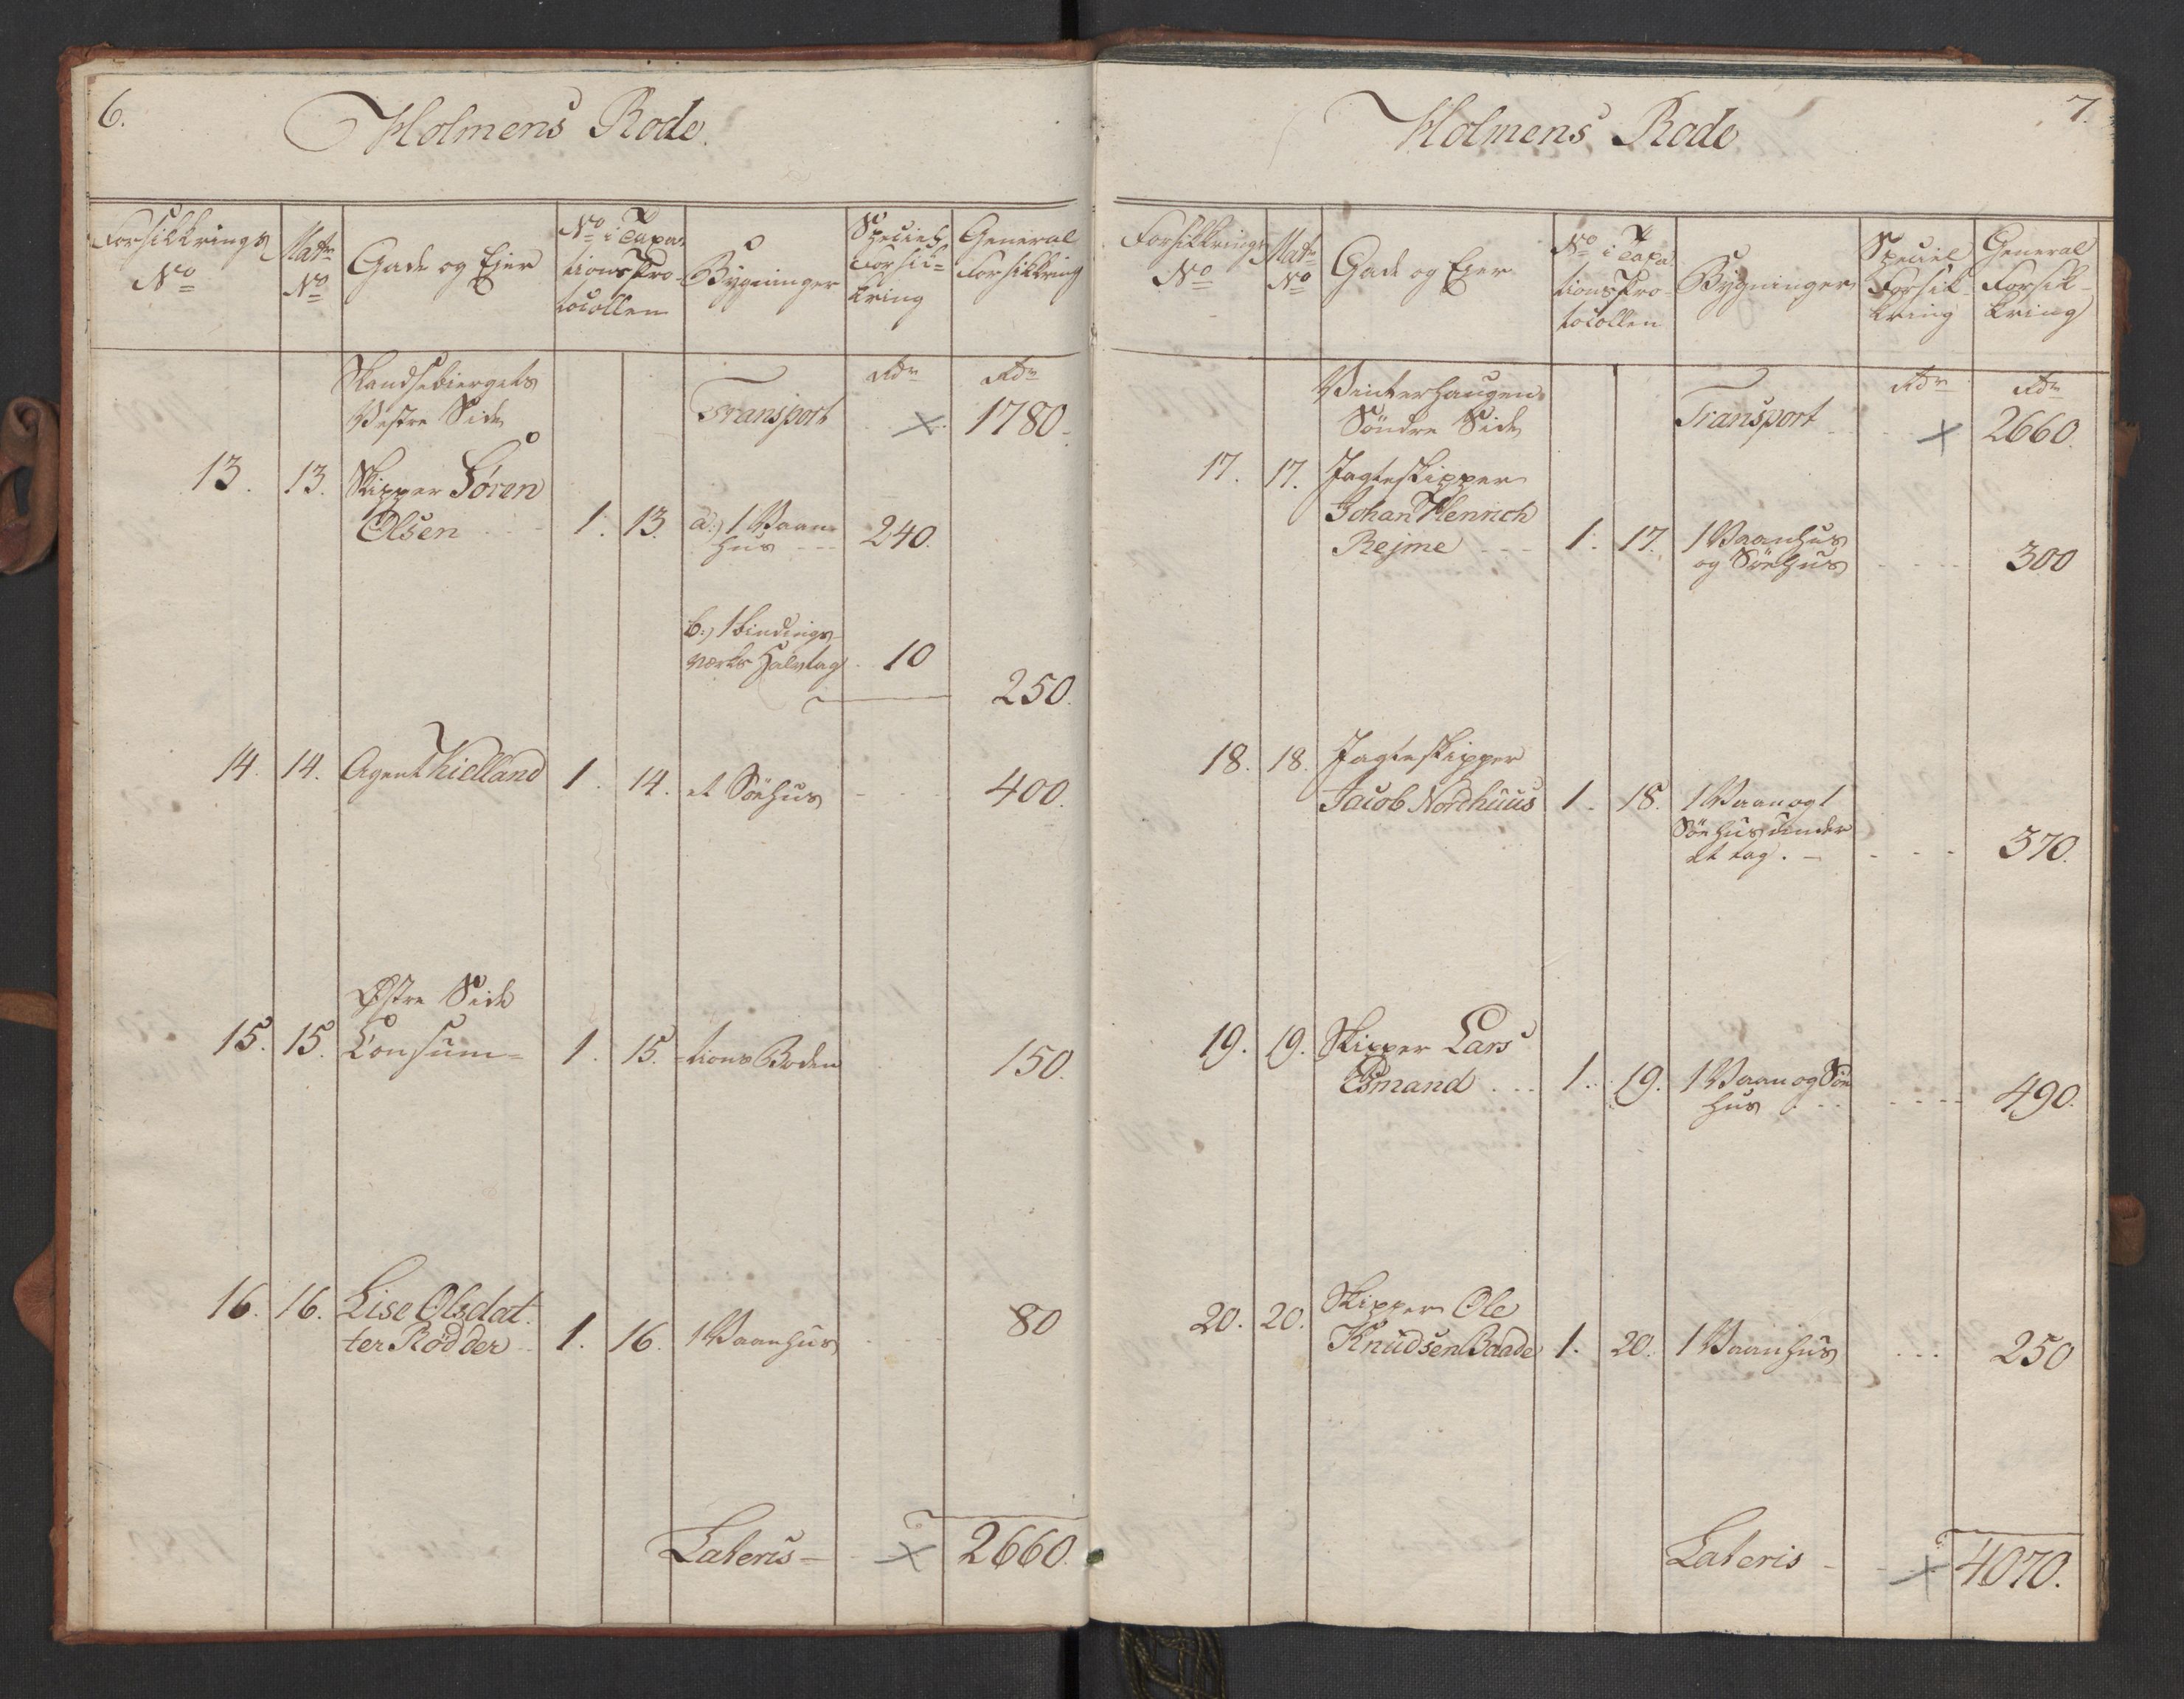 6.
Holmens Rode.
Forsikkrings No
Matr No
Gade og Ejer
No i Taxationsprotocollen
Bygninger
Speciel Forsikkring
General Forsikkring
Skandsebiergets
Vestre Side
Transport
Rdr
Rdr
1780
13. 13. Skipper Søren
Olsen 1. 13. a.) 1 Vaanhus 240.
b.) 1 bindingsværks Halvtag 10
250.
14. 14. Agent Kielland 1. 14. et Söehus 400.
Østre Side
15. 15. Consum= 1. 15. =tions Boden 150.
16. 16. Lise Olsdat
ter Rødder 1. 16. 1 Vaanhus 80
Lateris 2660.
7.
Holmens Rode
Forsikkrings No
Matr No
Gade og Ejer
No i Taxationsprotocollen
Bygninger
Speciel Forsikkring
General Forsikkring
Vinterhaugens
Söndre Side
Transport
Rdr
Rdr
2660.
17. 17. Jagteskipper
Johan Henrich
Rejme 1. 17. 1 Vaanhus
og Söehus 300
18. 18. Jagteskipper
Jacob Nordhuus 1. 18. 1 Vaan og 1
Söehus under
et tag. 370.
19. 19. Skipper Lars
Esmand 1. 19. 1 Vaan og Söe
hus 490.
20. 20. Skipper Ole
Knudsen Baade 1. 20. 1 Vaanhus 250
Lateris 4070.